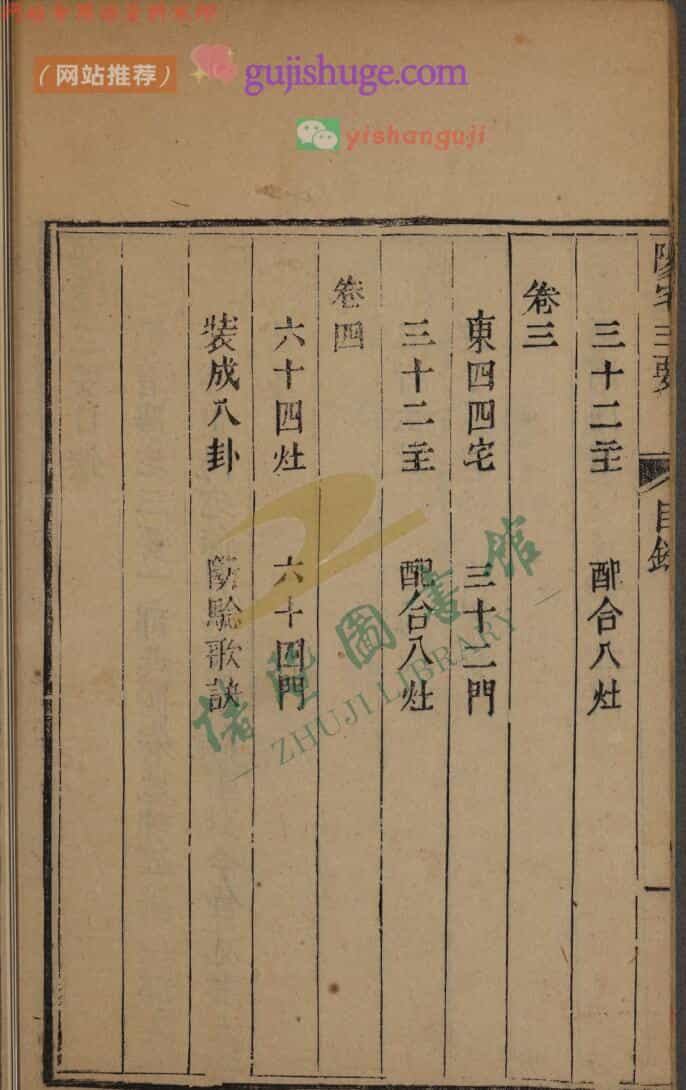 （网站推荐） gujishuge.com
yishanguji
陽宅三要 目錄 一
三十二主 配合八灶
卷三
東四四宅 三十二門
三十二主 配合八灶
卷四
六十四灶 六十四門
裝成八卦 驗歌訣
諸暨圖書館
ZHUJI LIBRARY